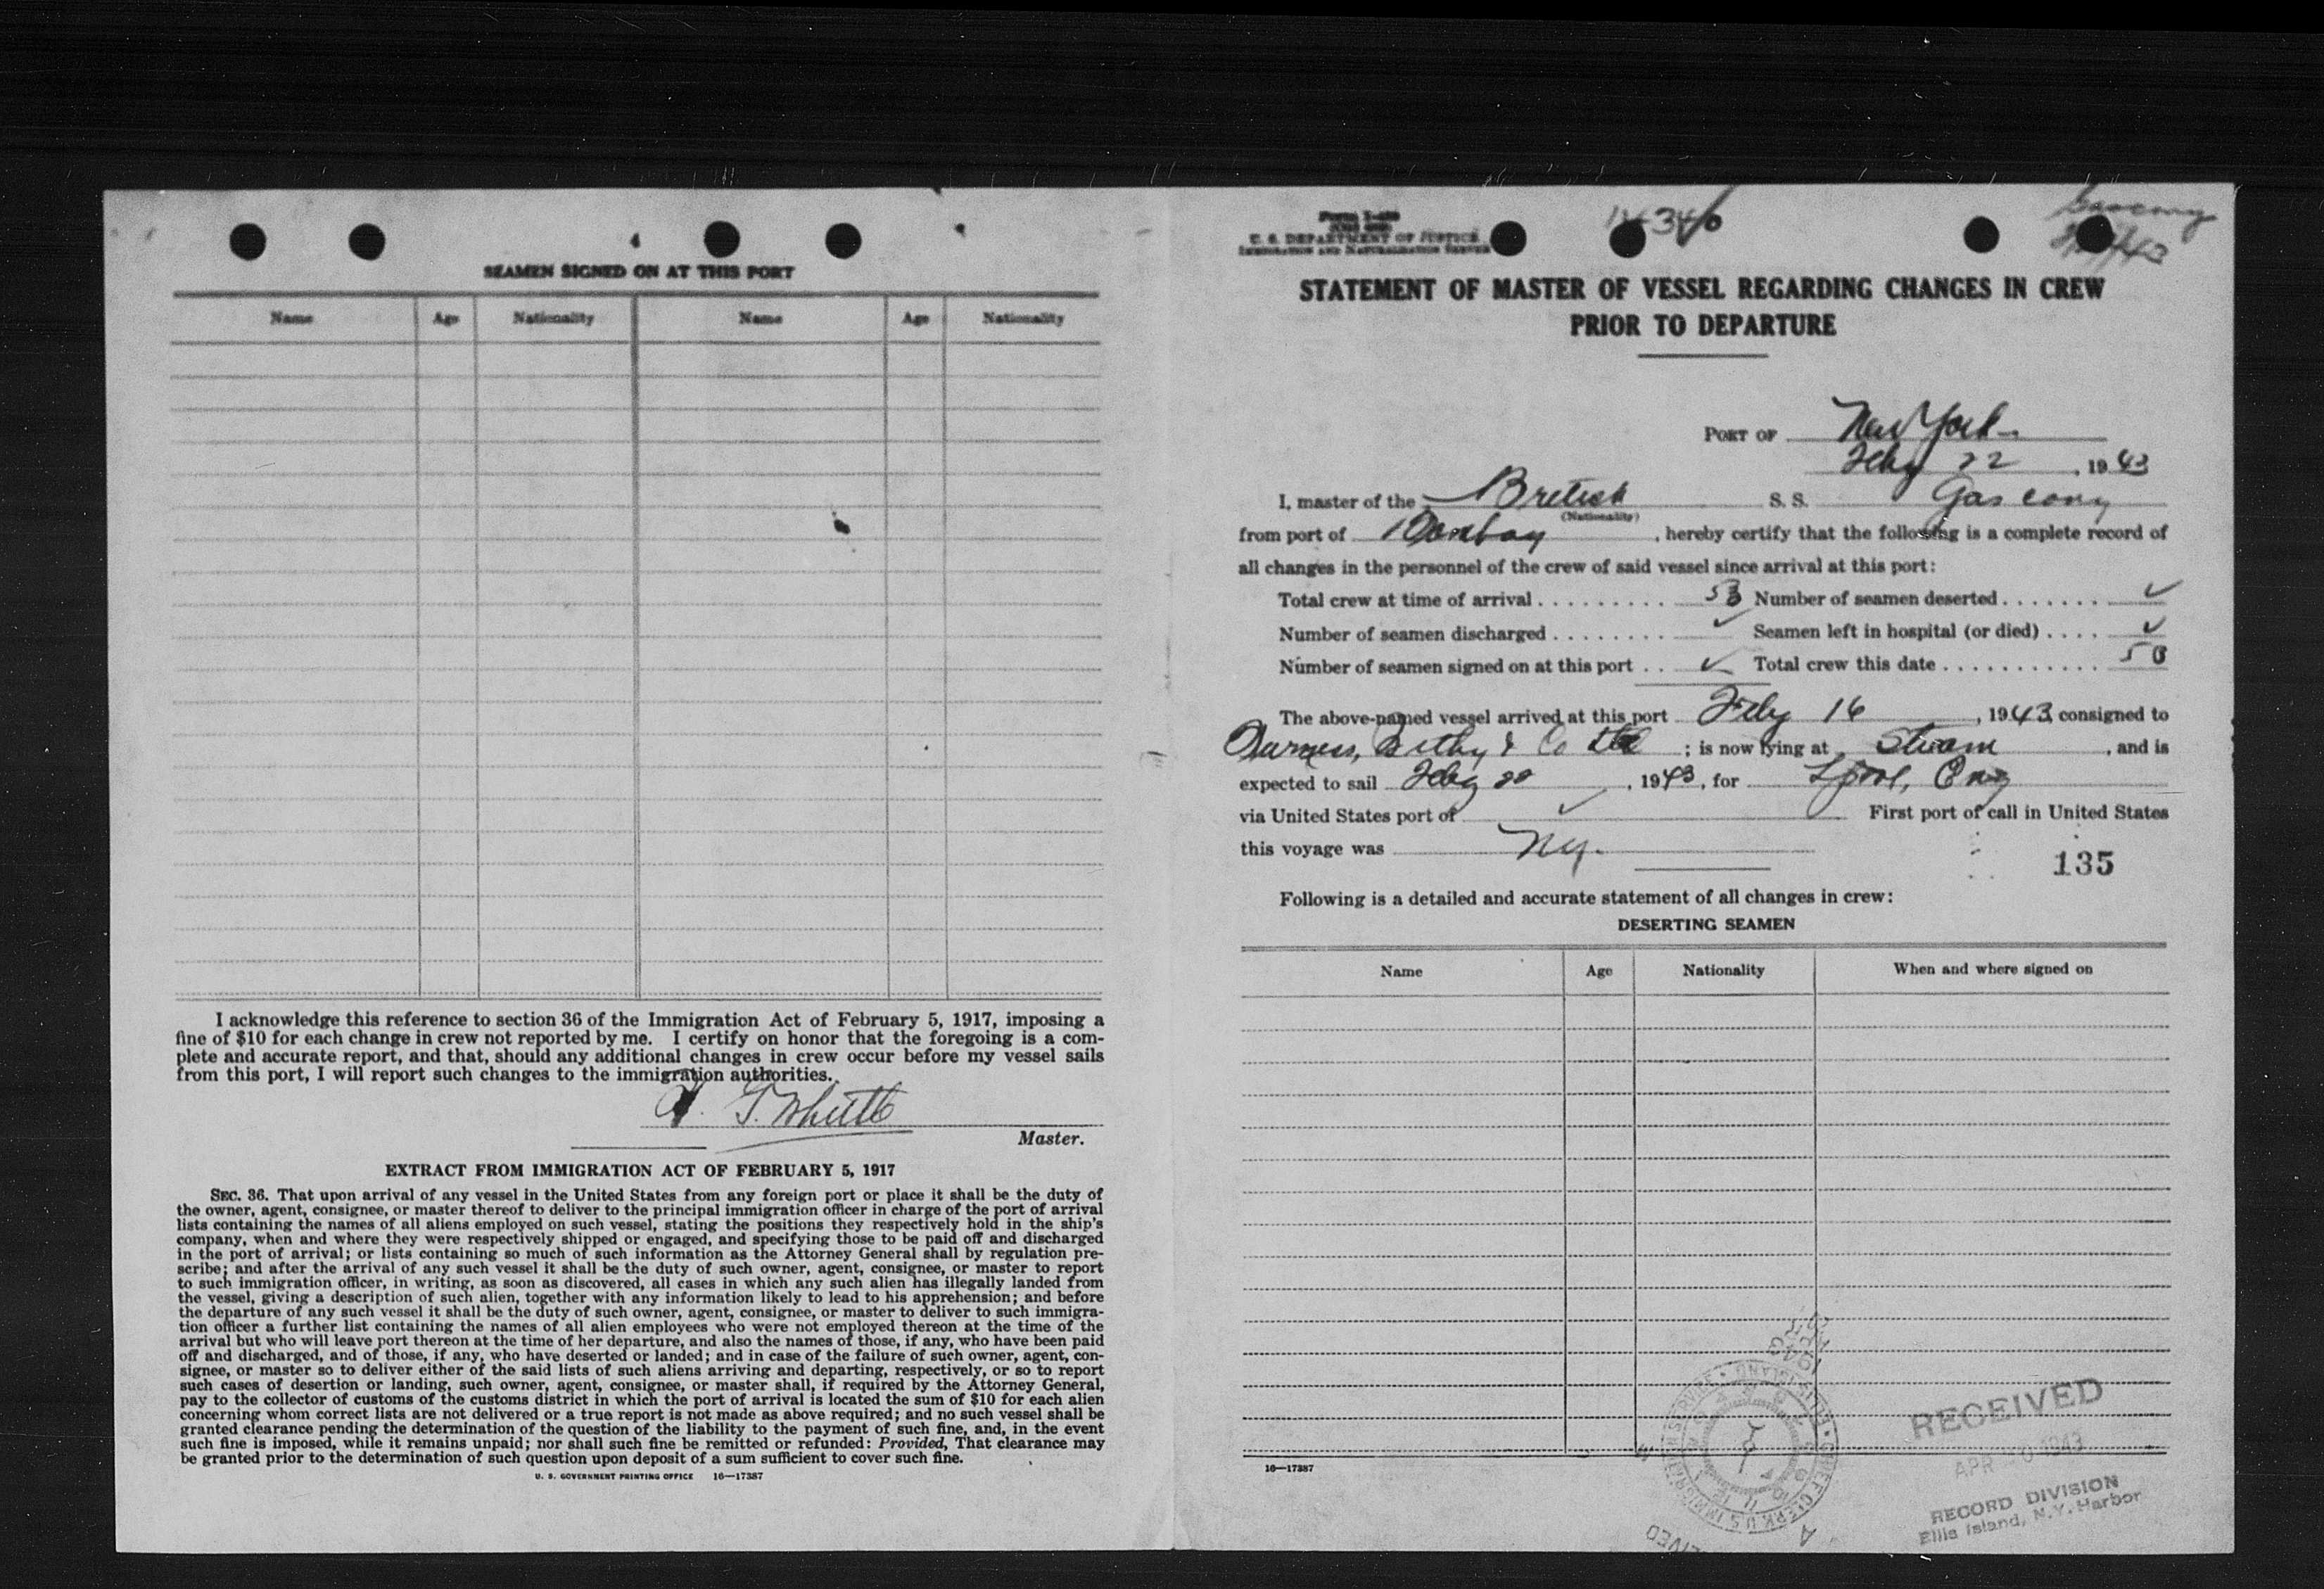 SEAMEN SIGNED ON AT THIS PORT
Name Age Nationality Name Age Nationality
I acknowledge this reference to section 36 of the Immigration Act of February 5, 1917, imposing a
fine of $10 for each change in crew not reported by me. I certify on honor that the foregoing is a com-
plete and accurate report, and that, should any additional changes in crew occur before my vessel sails
from this port, I will report such changes to the immigration authorities.
Master.
EXTRACT FROM IMMIGRATION ACT OF FEBRUARY 5, 1917
SEC. 36. That upon arrival of any vessel in the United States from any foreign port or place it shall be the duty of
the owner, agent, consignee, or master thereof to deliver to the principal immigration officer in charge of the port of arrival
lists containing the names of all aliens employed on such vessel, stating the positions they respectively hold in the ship's
company, when and where they were respectively shipped or engaged, and specifying those to be paid off and discharged
in the port of arrival; or lists containing so much of such information as the Attorney General shall by regulation pre-
scribe; and after the arrival of any such vessel it shall be the duty of such owner, agent, consignee, or master to report
to such immigration officer, in writing, as soon as discovered, all cases in which any such alien has illegally landed from
the vessel, giving a description of such alien, together with any information likely to lead to his apprehension; and before
the departure of any such vessel it shall be the duty of such owner, agent, consignee, or master to deliver to such immigra-
tion officer a further list containing the names of all alien employees who were not employed thereon at the time of the
arrival but who will leave port thereon at the time of her departure, and also the names of those, if any, who have been paid
off and discharged, and of those, if any, who have deserted or landed; and in case of the failure of such owner, agent, con-
signee, or master so to deliver either of the said lists of such aliens arriving and departing, respectively, or so to report
such cases of desertion or landing, such owner, agent, consignee, or master shall, if required by the Attorney General,
pay to the collector of customs of the customs district in which the port of arrival is located the sum of $10 for each alien
concerning whom correct lists are not delivered or a true report is not made as above required; and no such vessel shall be
granted clearance pending the determination of the question of the liability to the payment of such fine, and, in the event
such fine is imposed, while it remains unpaid; nor shall such fine be remitted or refunded: Provided, That clearance may
be granted prior to the determination of such question upon deposit of a sum sufficient to cover such fine.
U. S. GOVERNMENT PRINTING OFFICE 16—17387
U. S. DEPARTMENT OF JUSTICE
IMMIGRATION AND NATURALIZATION SERVICE
Gascony
STATEMENT OF MASTER OF VESSEL REGARDING CHANGES IN CREW
PRIOR TO DEPARTURE
PORT OF New York
Feby 22, 1943
I, master of the British S. S. Gascony
(Nationality)
from port of Bombay, hereby certify that the following is a complete record of
all changes in the personnel of the crew of said vessel since arrival at this port:
Total crew at time of arrival . . . . . . . . . . Number of seamen deserted . . . . . . . ✓
Number of seamen discharged . . . . . . . . ✓ Seamen left in hospital (or died) . . . . ✓
Number of seamen signed on at this port . . ✓ Total crew this date . . . . . . . . . . .
The above-named vessel arrived at this port Feby 16, 1943 consigned to
Furness, Withy & Co Ltd; is now lying at Stream, and is
expected to sail Feby 22, 1943, for Lpool, Eng
via United States port of ✓ First port of call in United States
this voyage was NY.
135
Following is a detailed and accurate statement of all changes in crew:
DESERTING SEAMEN
Name Age Nationality When and where signed on
16—17387
RECEIVED
APR 1943
RECORD DIVISION
Ellis Island, N.Y. Harbor